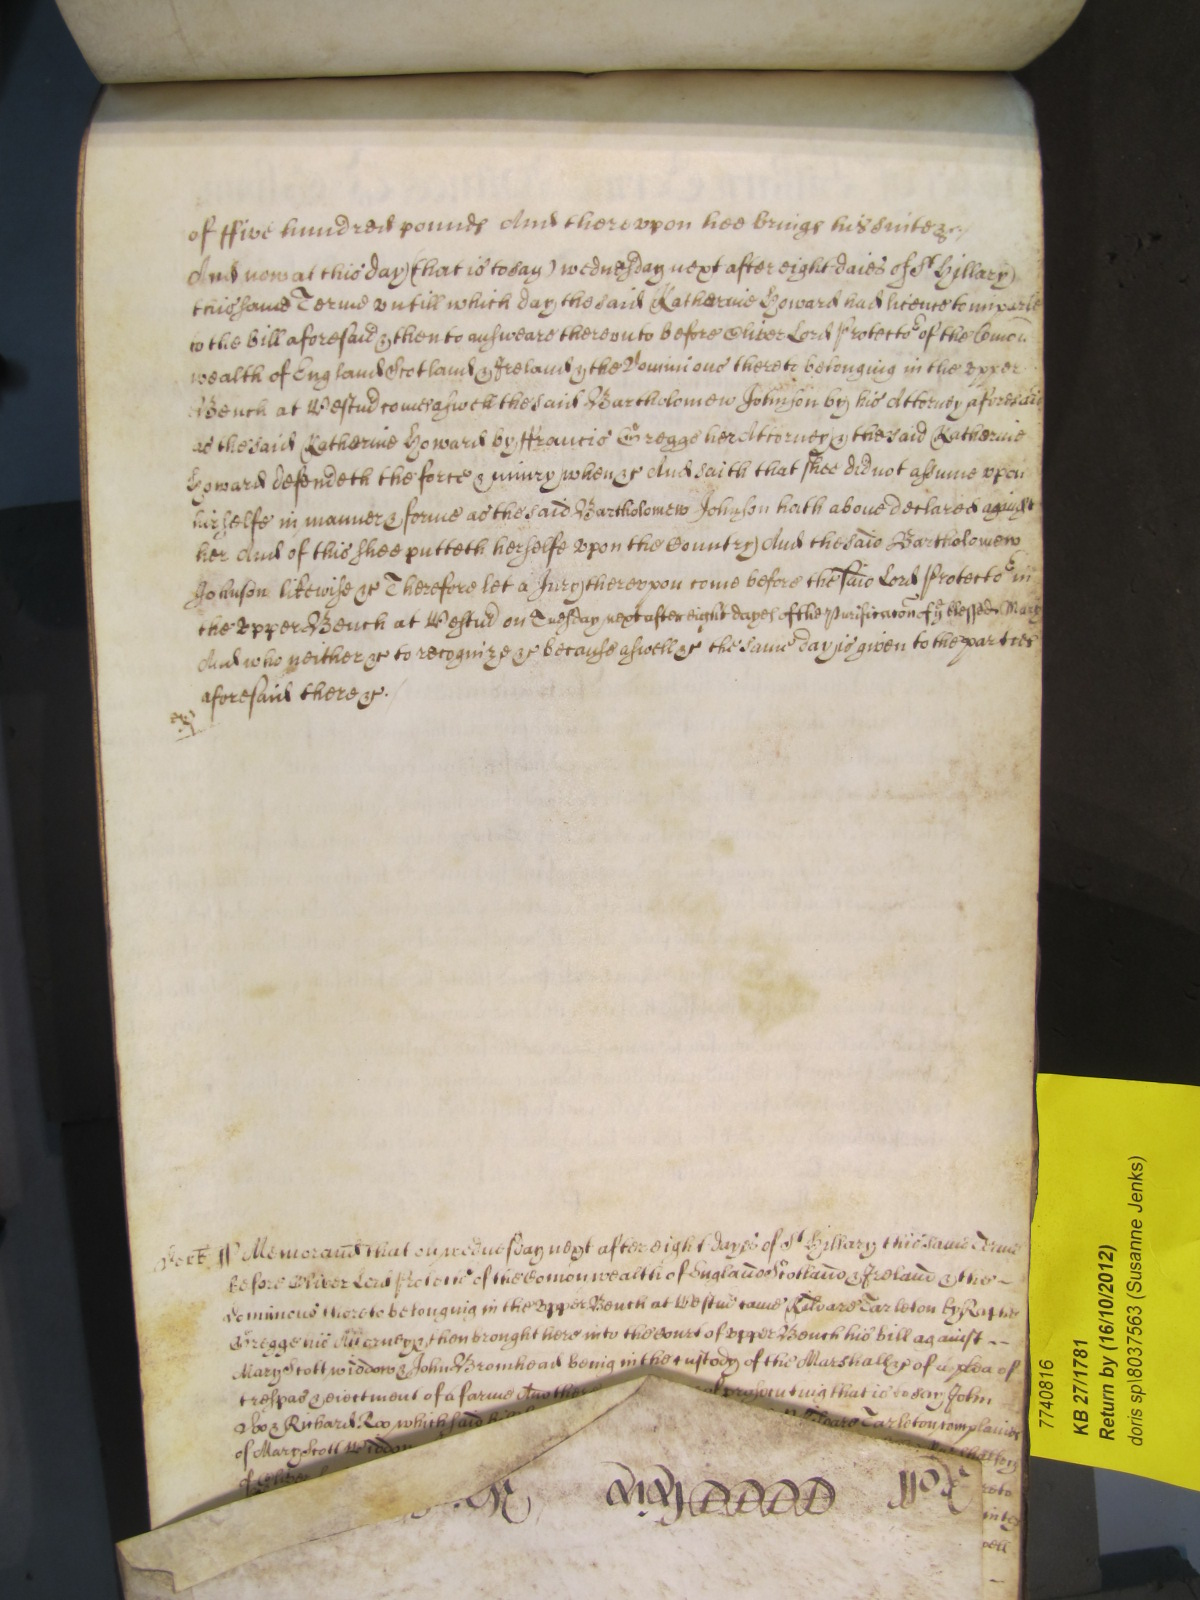 of ffive hundred pounds And therevpon hee brings his suite &c
And now at this day (that is to say) wednesday next after eight daies of St Hillary
this same Terme vntill which day the said Katherine Howard had licence to imparle
to the bill aforesaid & then to answeare therevnto before Oliver Lord Protector of the Comon
wealth of England Scotland & Ireland & the Dominions thereto belonging in the vpper
Bench at Westm comes aswell the said Bartholomew Johnson by his Attorney aforesaid
as the said Katherine Howard by ffrancis Gregge her Attorney & the said Katherine
Howard defendeth the force & iniury when &c And saith that shee did not assume vpon
her selfe in manner & forme as the said Bartholomew Johnson hath aboue declared against
her And of this shee putteth herselfe vpon the Country And the said Bartholomew
Johnson likewise &c Therefore let a Jury therevpon come before the said Lord Protector in
the vpper Bench at Westm on Tuesday next after eight dayes of the Purificacon of ye blessed Mary
And who neither &c to recognize &c because aswell &c the same day is given to the parties
aforesaid there &c.
Memorand that on wednesday next after eight dayes of St Hillary this same Terme
before Oliver Lord Protector of the Comonwealth of England Scotland & Ireland & the
dominions thereto belonging in the vpper Bench at Westm came Edward Tarleton by
Gregge his Attorney & then brought here into the Court of vpper Bench his bill against
Mary Scott widdow & John Bromhead being in the custody of the Marshall &c of a plea of
trespas & eiectment of a farme And there of prosecuting that is to say John
Doo & Richard Roo which said Tarleton complaines
of Mary Scott Widdow
7740816
KB 27/1781
Return by (16/10/2012)
doris sp\8037563 (Susanne Jenks)